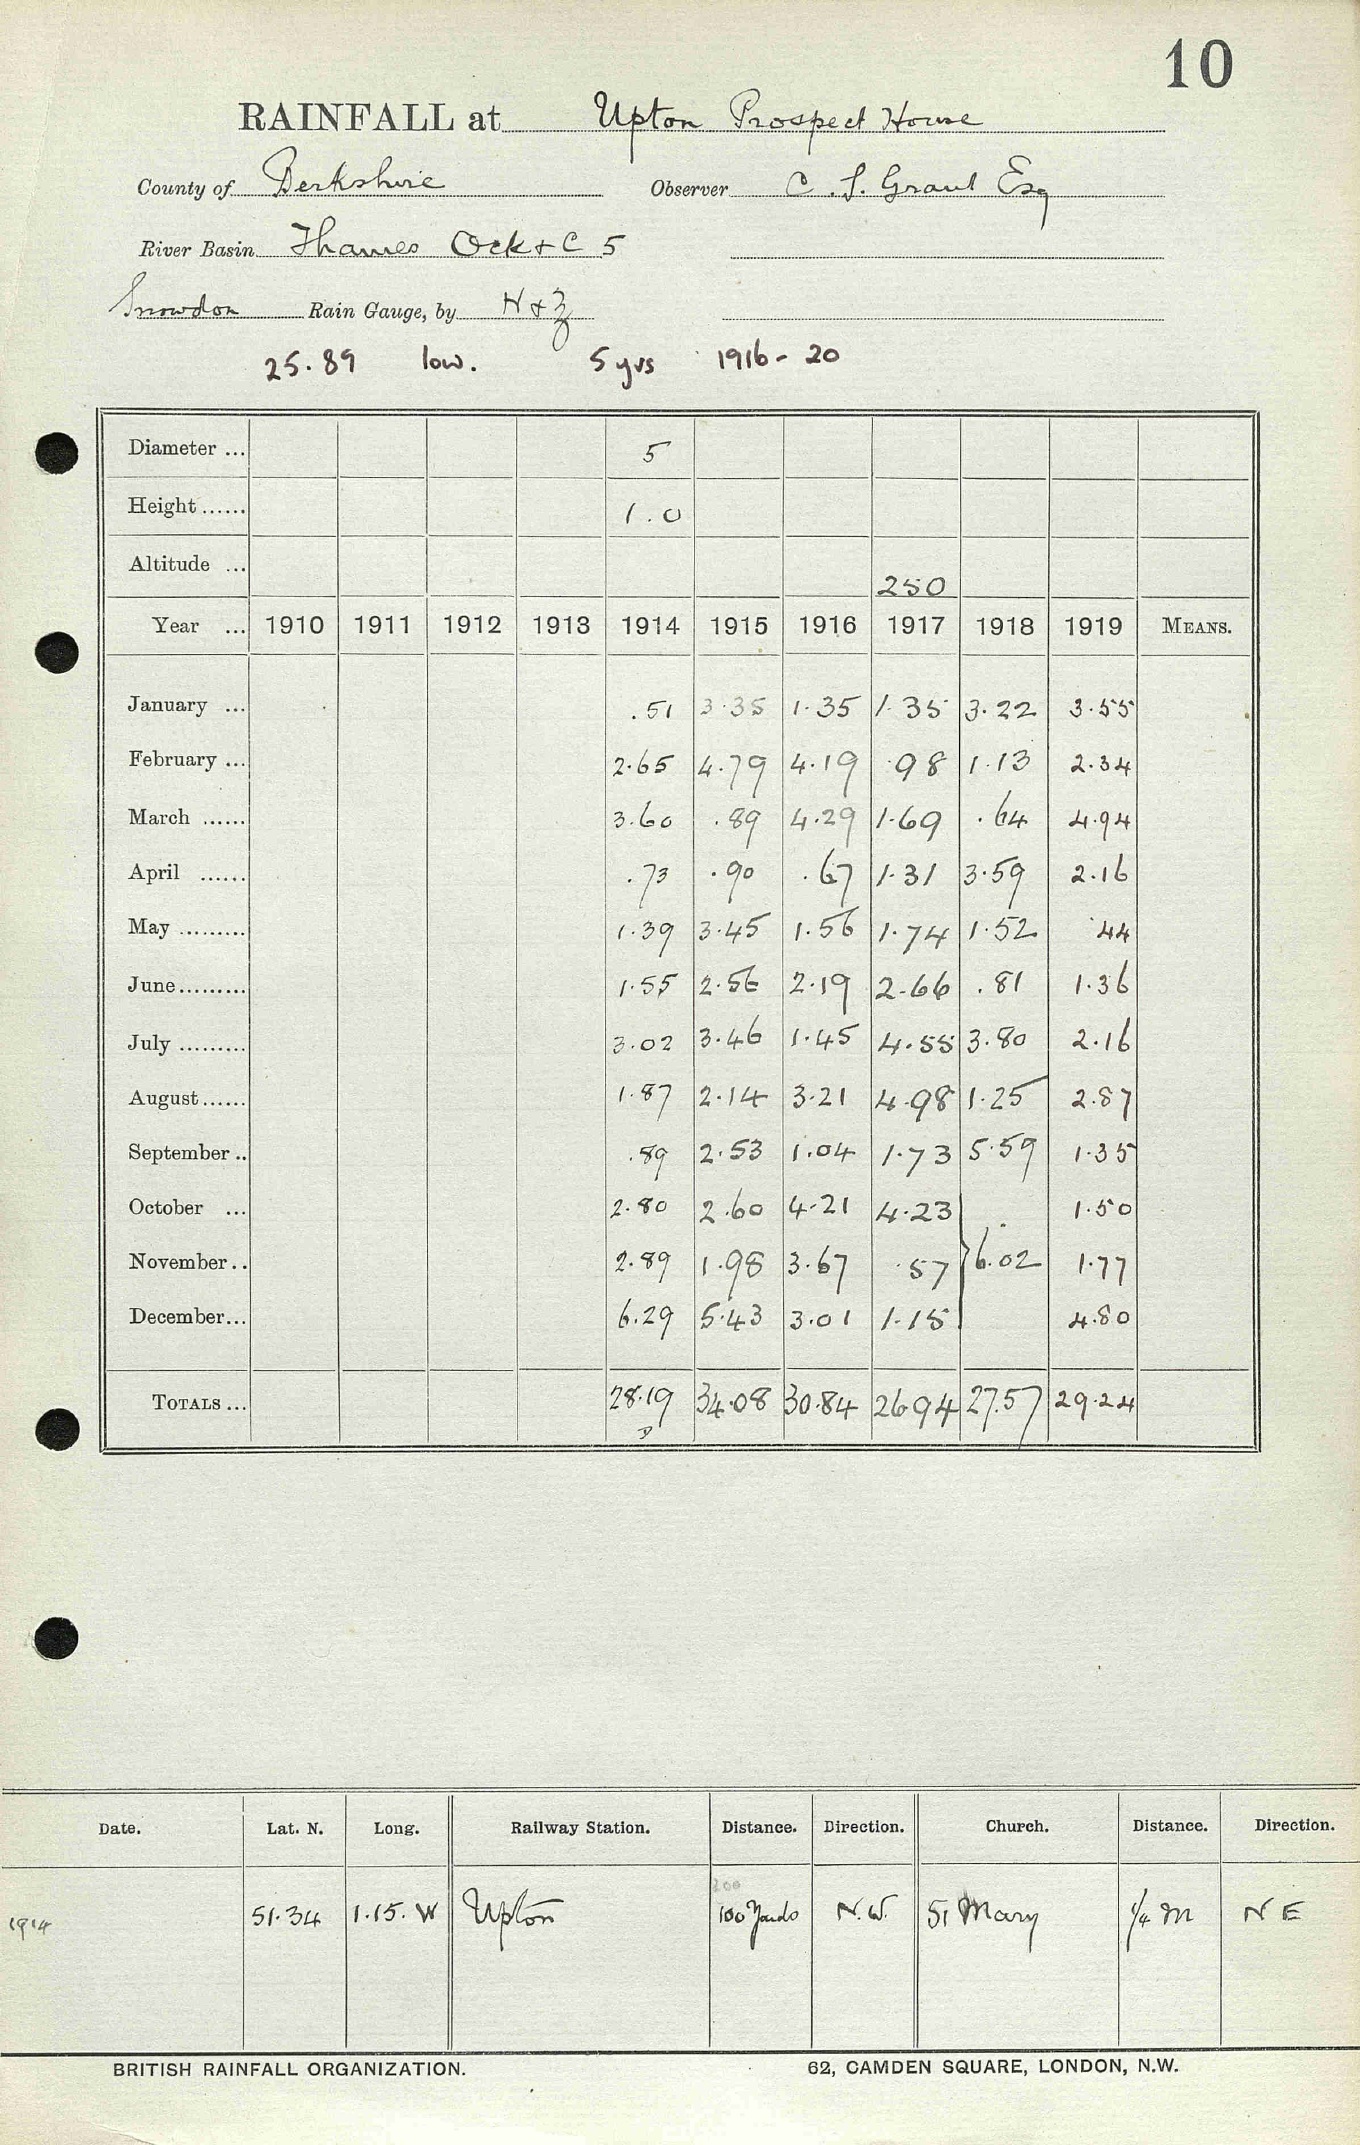 10
RAINFALL at Upton Prospect House
County of Berkshire Observer C. S. Grant Esq
River Basin Thames Ock & C 5
Snowdon Rain Gauge, by N & Z
25.89 low. 5 yrs 1916-20
Diameter ... 5
Height ...... 1.0
Altitude ... 250
Year ... 1910 1911 1912 1913 1914 1915 1916 1917 1918 1919 MEANS.
January ... .51 3.35 1.35 1.35 3.22 3.55
February ... 2.65 4.79 4.19 .98 1.13 2.34
March ...... 3.60 .89 4.29 1.69 .64 4.94
April ...... .73 .90 .67 1.31 3.59 2.16
May ......... 1.39 3.45 1.56 1.74 1.52 .44
June ......... 1.55 2.56 2.19 2.66 .81 1.36
July ......... 3.02 3.46 1.45 4.55 3.80 2.16
August ...... 1.87 2.14 3.21 4.98 1.25 2.87
September .. .89 2.53 1.04 1.73 5.59 1.35
October ... 2.80 2.60 4.21 4.23 1.50
November .. 2.89 1.98 3.67 .57 } 6.02 1.77
December ... 6.29 5.43 3.01 1.15 4.80
TOTALS ... 28.19 34.08 30.84 26.94 27.57 29.24
Date. Lat. N. Long. Railway Station. Distance. Direction. Church. Distance. Direction.
200
1914 51.34 1.15. W Upton 100 Yards N.W. St Mary 1/4 M N E
BRITISH RAINFALL ORGANIZATION. 62, CAMDEN SQUARE, LONDON, N.W.